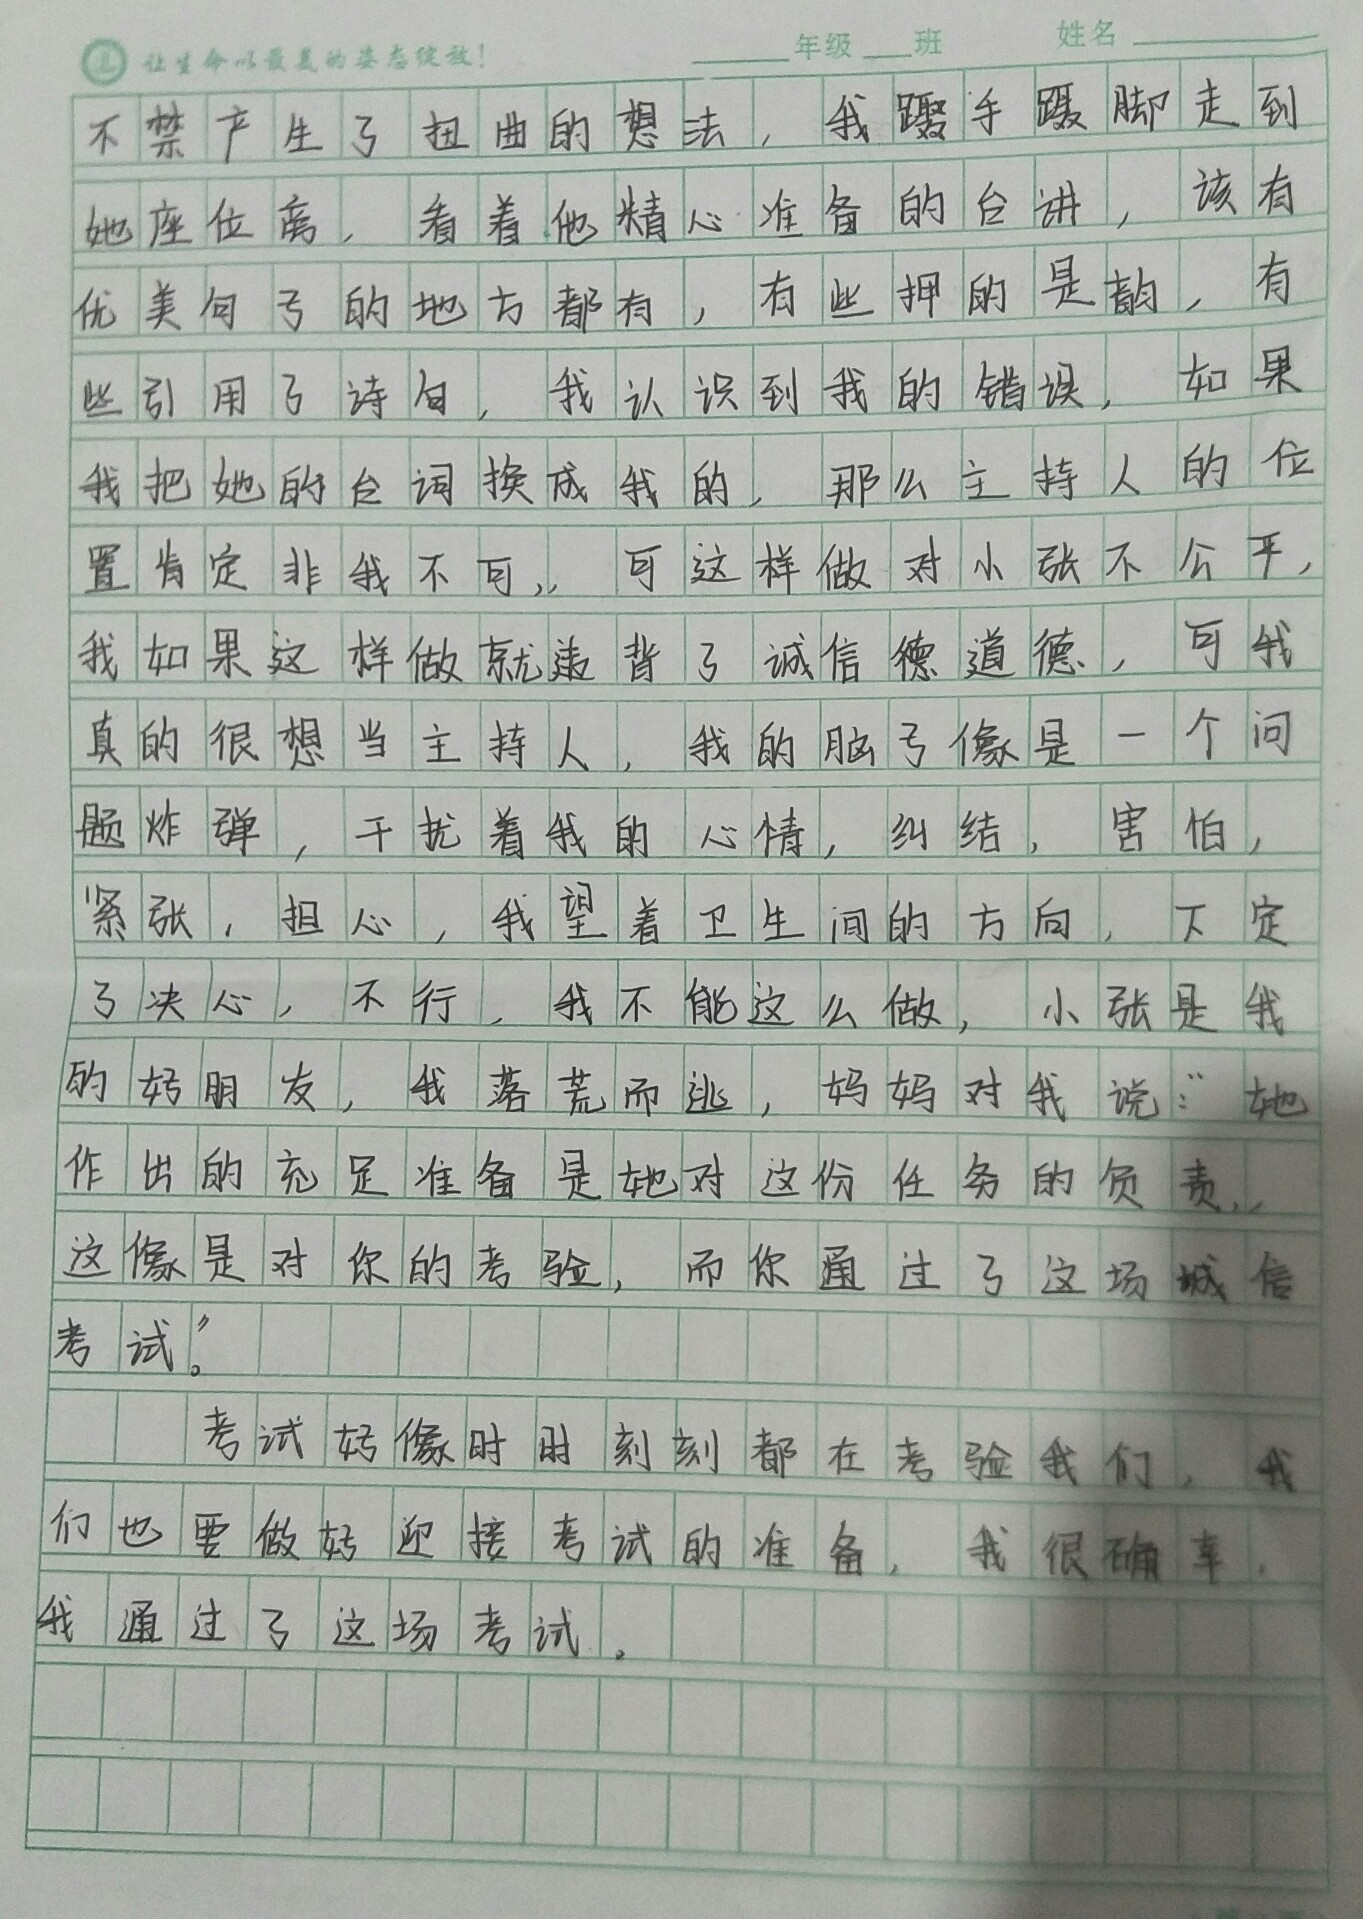 让生命以最美的姿态绽放！ 年级 班 姓名
不禁产生了扭曲的想法，我蹑手蹑脚走到
她座位离，看着他精心准备的台讲，该有
优美句子的地方都有，有些押的是韵，有
些引用了诗句，我认识到我的错误，如果
我把她的台词换成我的，那么主持人的位
置肯定非我不可，，可这样做对小张不公平，
我如果这样做就违背了诚信德道德，可我
真的很想当主持人，我的脑子像是一个问
题炸弹，干扰着我的心情，纠结，害怕，
紧张，担心，我望着卫生间的方向，下定
了决心，不行，我不能这么做，小张是我
的好朋友，我落荒而逃，妈妈对我说：“她
作出的充足准备是她对这份任务的负责，，
这像是对你的考验，而你通过了这场诚信
考试。”
考试好像时时刻刻都在考验我们，我
们也要做好迎接考试的准备，我很确幸，
我通过了这场考试。